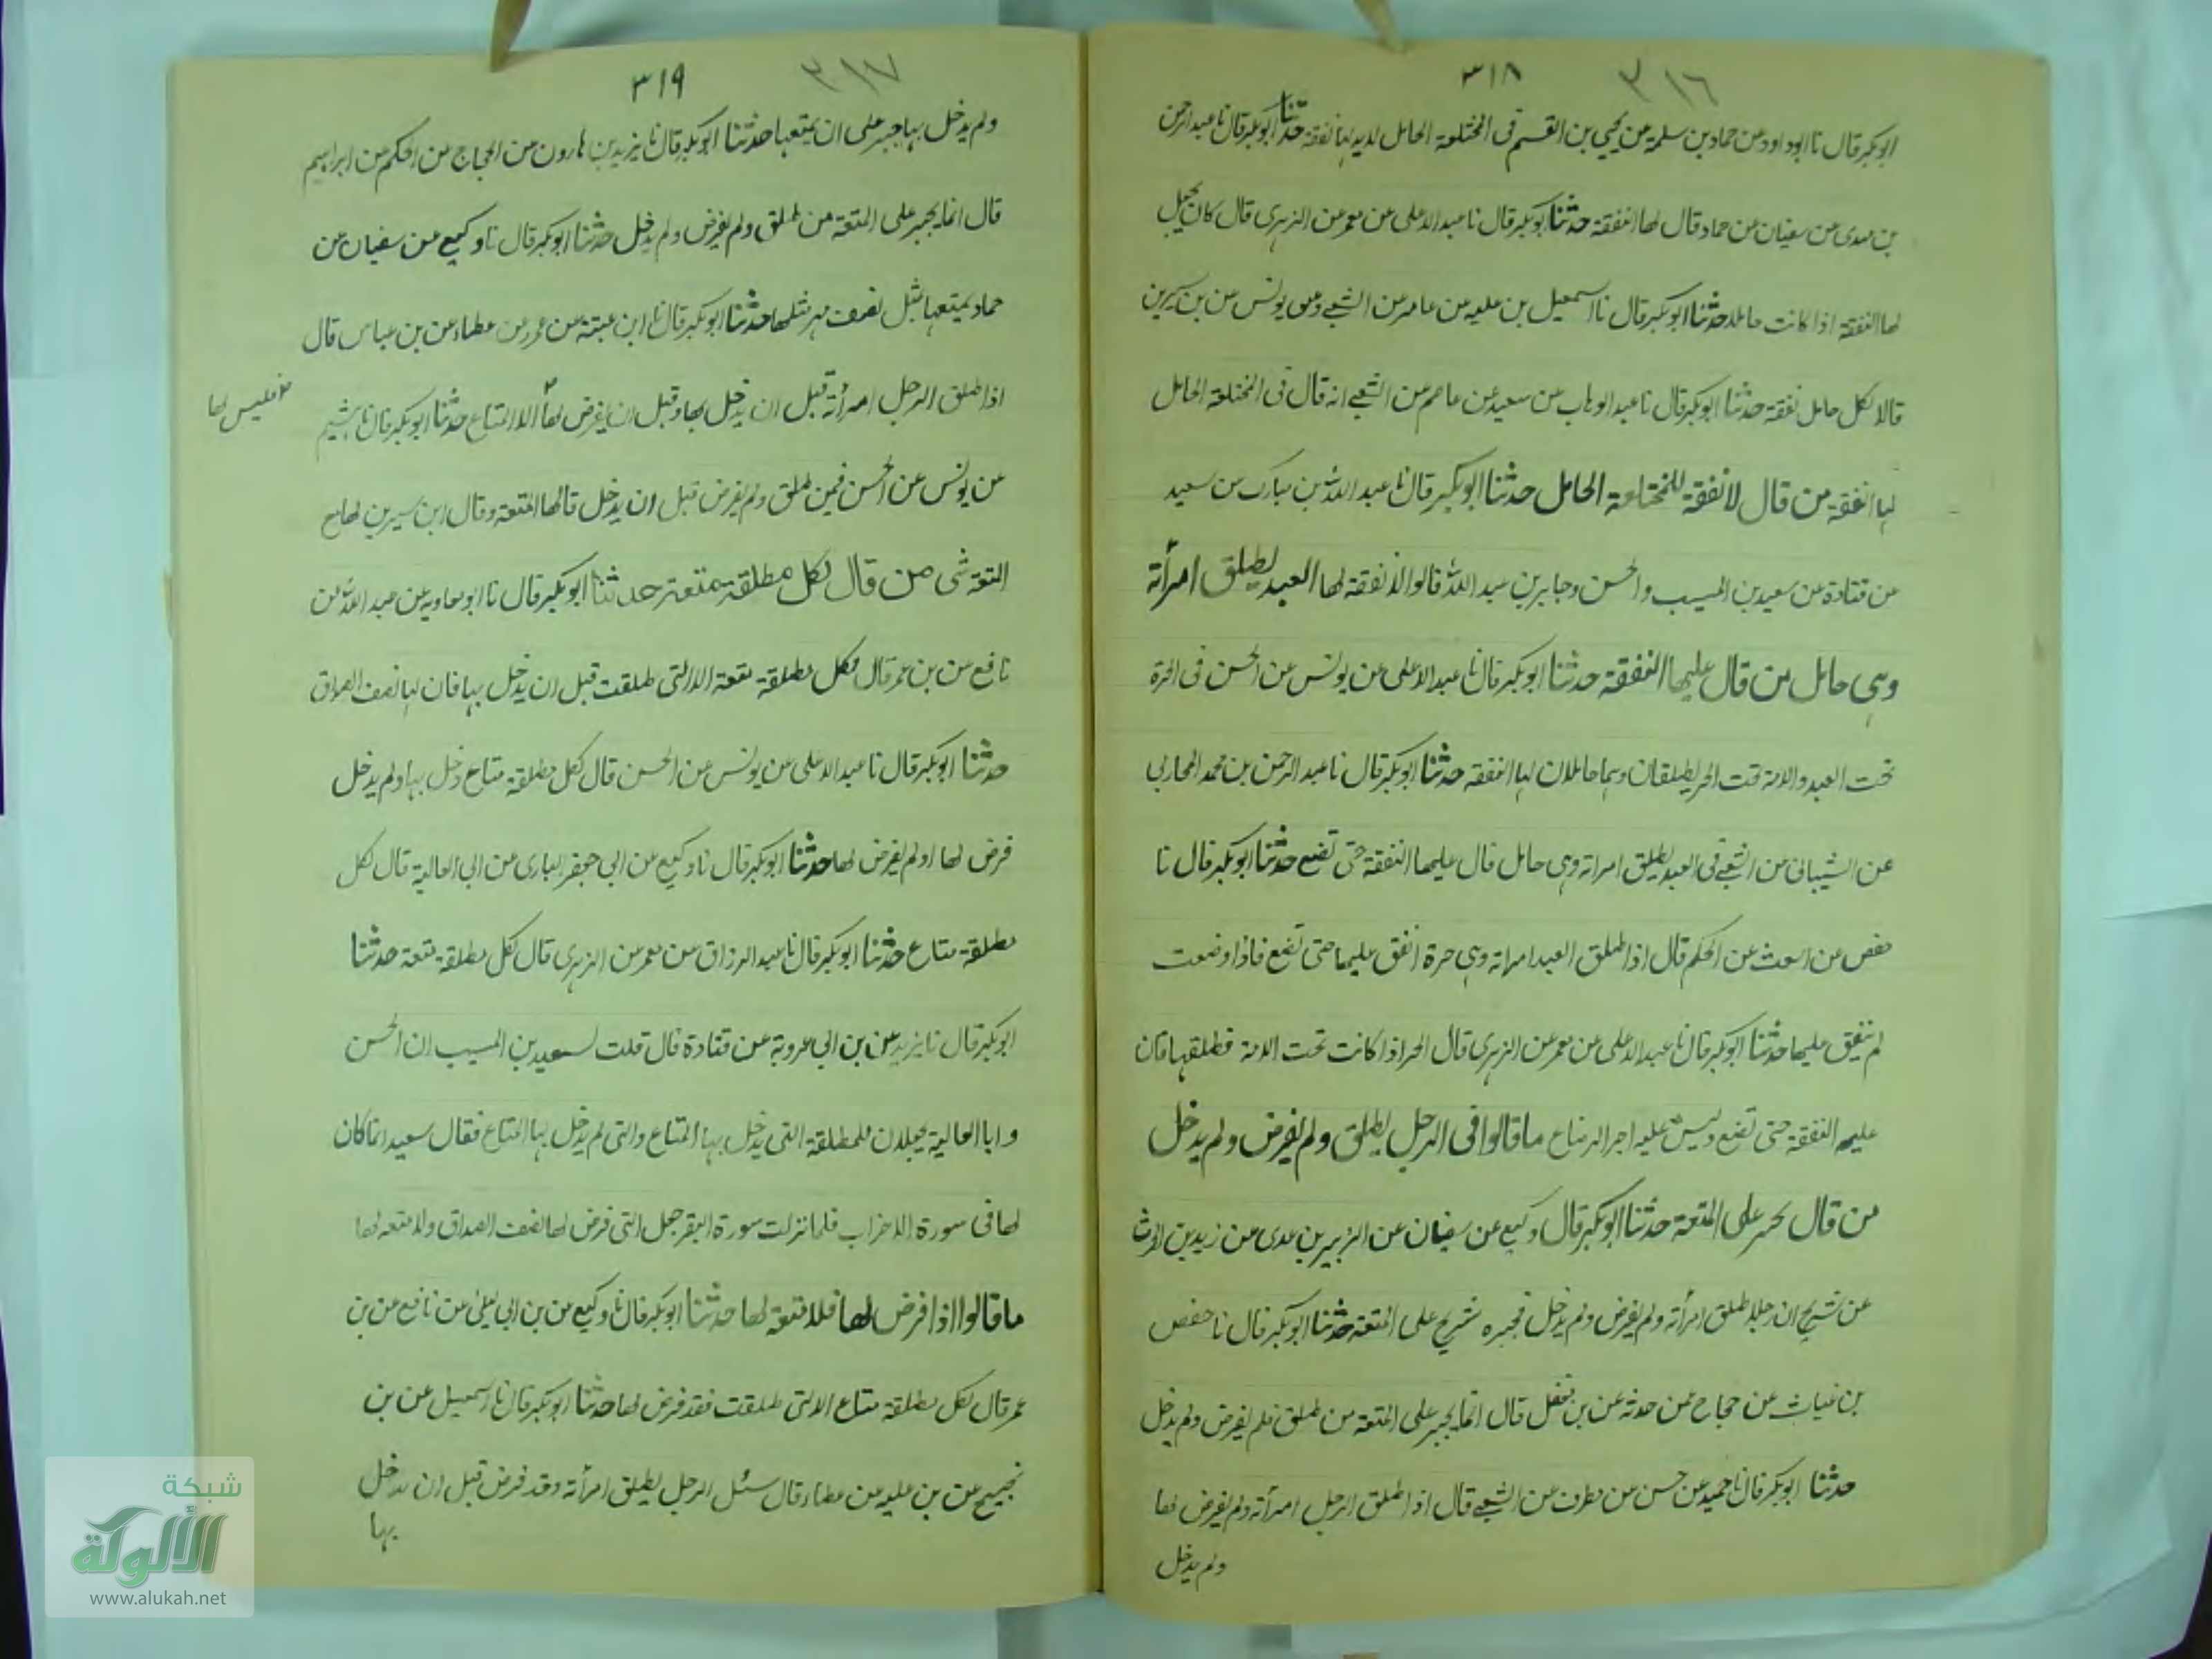 ٣١٦ ٣١٨
ابوبكر قال نا ابوداود عن حماد بن سلمة عن يحيى بن القسم فى المختلعة الحامل لديه لها نفقة حدثنا ابوبكر قال نا عبد الرحمن
بن مهدى عن سفيان عن حماد قال لها النفقة حدثنا ابوبكر قال نا عبد الاعلى عن معمر عن الزهرى قال كان يجعل
لها النفقة اذا كانت حاملا حدثنا ابوبكر قال نا اسمعيل بن عليه عن عامر عن الشعبى وعن يونس عن بن سيرين
قالا لكل حامل نفقة حدثنا ابوبكر قال نا عبد الوهاب عن سعيد عن عاصم عن الشعبى انه قال فى المختلعة الحامل
لها النفقة من قال لا نفقة للمختلعة الحامل حدثنا ابوبكر قال نا عبد الله بن مبارك عن سعيد
عن قتادة عن سعيد بن المسيب والحسن وجابر بن عبد الله قالوا لا نفقة لها العبد يطلق امرأته
وهى حامل من قال عليها النفقة حدثنا ابوبكر قال نا عبد الاعلى عن يونس عن الحسن فى الحرة
تحت العبد والامة تحت الحر يطلقان وهما حاملان لها النفقة حدثنا ابوبكر قال نا عبد الرحمن بن محمد المحاربى
عن الشيبانى عن الشعبى فى العبد يطلق امراته وهى حامل قال عليها النفقة حتى تضع حدثنا ابوبكر قال نا
حفص عن اسعث عن الحكم قال اذا طلق العبد امراته وهى حرة انفق عليها حتى تضع فاذا وضعت
لم ينفق عليها حدثنا ابوبكر قال نا عبد الاعلى عن معمر عن الزهرى قال الحر اذا كانت تحت الامة فطلقها فان
عليه النفقة حتى تضع وليس عليه اجر الرضاع ما قالوا فى الرجل يطلق ولم يفرض ولم يدخل
من قال يجبر على المتعة حدثنا ابوبكر قال وكيع عن سفيان عن الزبير بن عدى عن زيد بن الحرث
عن شريح ان رجلا طلق امرأته ولم يفرض ولم يدخل فجبره شريح على المتعة حدثنا ابوبكر قال نا حفص
بن غياث عن حجاج عمن حدثه عن بن مغفل قال انما يجبر على المتعة من طلق فلم يفرض ولم يدخل
حدثنا ابوبكر قال نا حميد عن حسن عن مطرف عن الشعبى قال اذا طلق الرجل امرأته ولم يفرض لها
ولم يدخل
٣١٧ ٣١٩
ولم يدخل بها جبر على ان يمتعها حدثنا ابوبكر قال نا يزيد بن هارون عن الحجاج عن الحكم عن ابراهيم
قال انما يجبر على المتعة من طلق ولم يفرض ولم يدخل حدثنا ابوبكر قال نا وكيع عن سفيان عن
حماد يمتعها مثل نصف مهر مثلها حدثنا ابوبكر قال نا ابن عيينة عن عمر عن عطاء عن بن عباس قال
اذا طلق الرجل امرأته قبل ان يدخل بها وقبل ان يفرض لها الا المتاع حدثنا ابوبكر قال نا هشيم
فليس لها
عن يونس عن الحسن فيمن طلق ولم يفرض قبل ان يدخل قال لها المتعة وقال ابن سيرين لها مع
المتعة شى من قال لكل مطلقة متعة حدثنا ابوبكر قال نا ابو معاويه عن عبد الله عن
نافع عن بن عمر قال لكل مطلقة متعة الا التى طلقت قبل ان يدخل بها فان لها نصف الصداق
حدثنا ابوبكر قال نا عبد الاعلى عن يونس عن الحسن قال لكل مطلقة متاع دخل بها ولم يدخل
فرض لها او لم يفرض لها حدثنا ابوبكر قال نا وكيع عن ابى جعفر البارى عن ابى العالية قال لكل
مطلقة متاع حدثنا ابوبكر قال نا عبد الرزاق عن معمر عن الزهرى قال لكل مطلقة متعة حدثنا
ابوبكر قال نا يزيد عن بن ابى عروبة عن قتادة قال قلت لسعيد بن المسيب ان الحسن
وابا العالية يجعلان للمطلقة التى يدخل بها المتاع والتى لم يدخل بها المتاع فقال سعيد انما كان
لها فى سورة الاحزاب فلما نزلت سورة البقر جعل التى فرض لها نصف الصداق ولا متعه لها
ما قالوا اذا فرض لها فلا متعة لها حدثنا ابوبكر قال نا وكيع عن بن ابى ليلى عن نافع عن بن
عمر قال لكل مطلقة متاع الا التى طلقت فقد فرض لها حدثنا ابوبكر قال نا اسمعيل عن بن
نجيح عن بن عليه عن عطاء قال سئل الرجل يطلق امرأته وقد فرض قبل ان يدخل
بها
شبكة
الألوكة
www.alukah.net